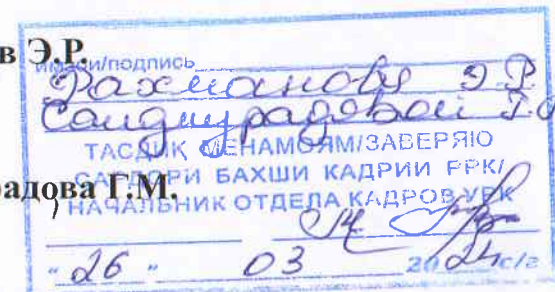 в Э.Р.
имзои/подпись
Рахманова Э.Р.
Саидмурадовой Г.
ТАСДИҚ МЕНАМОЯМ/ЗАВЕРЯЮ
САРДОРИ БАХШИ КАДРИИ РРК/
адова Г.М.
НАЧАЛЬНИК ОТДЕЛА КАДРОВ УРК
"26" 03 2024 с/г